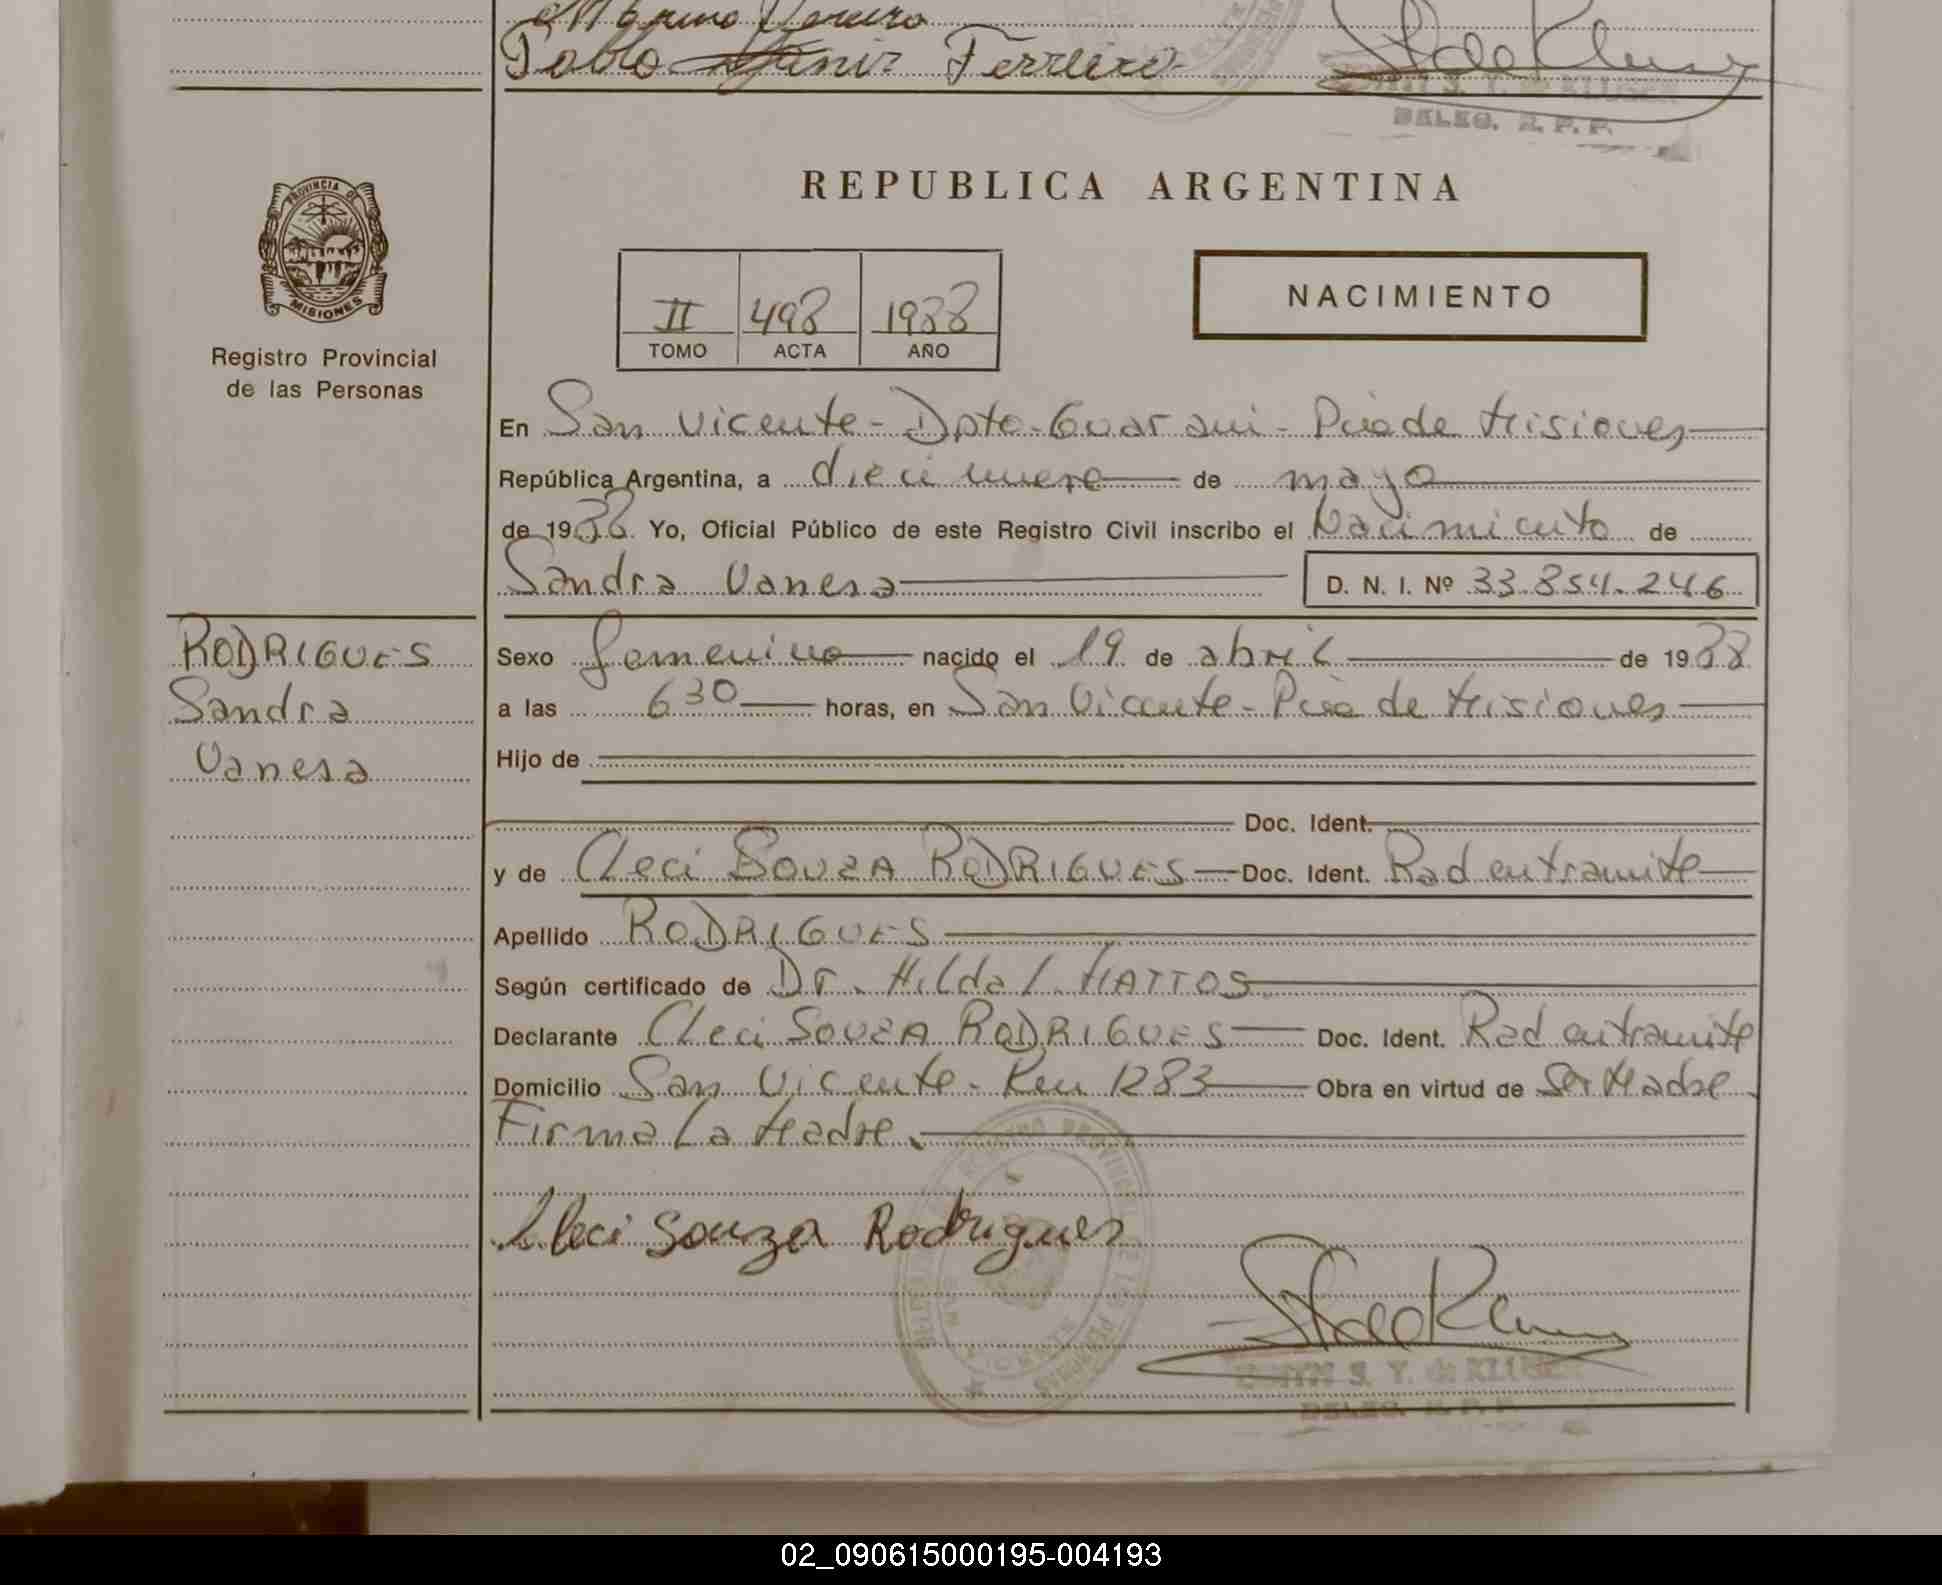 Pablo Ferreiro
S. Y. de KLUSER
DELEG. R. P. P.
PROVINCIA DE
MISIONES
Registro Provincial
de las Personas
REPUBLICA ARGENTINA
II 498 1988
TOMO ACTA AÑO
NACIMIENTO
En San Vicente - Dpto. Guarani - Pcia de Misiones
República Argentina, a dieci nueve de mayo
de 1988 Yo, Oficial Público de este Registro Civil inscribo el Nacimiento de
Sandra Vanesa D. N. I. Nº 33.854.246
RODRIGUES
Sandra
Vanesa
Sexo femenino nacido el 19 de abril de 1988
a las 6 30 horas, en San Vicente - Pcia de Misiones
Hijo de
Doc. Ident.
y de Cleci SOUZA RODRIGUES Doc. Ident. Rad en tramite
Apellido RODRIGUES
Según certificado de Dr. Hilda L. MATTOS
Declarante Cleci SOUZA RODRIGUES Doc. Ident. Rad en tramite
Domicilio San Vicente - Km 1283 Obra en virtud de Ser Madre
Firma La Madre.
Cleci Souza Rodrigues
S. Y. de KLUSER
DELEG. R. P. P.
02_090615000195-004193